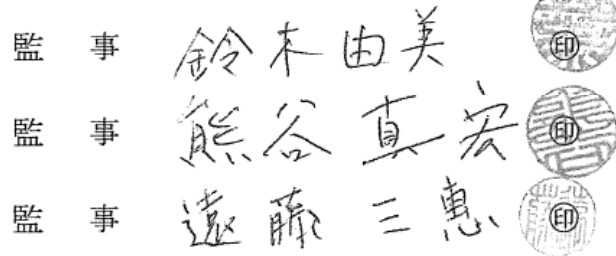 監事 鈴木由美 ㊞
監事 熊谷真宏 ㊞
監事 遠藤三恵 ㊞